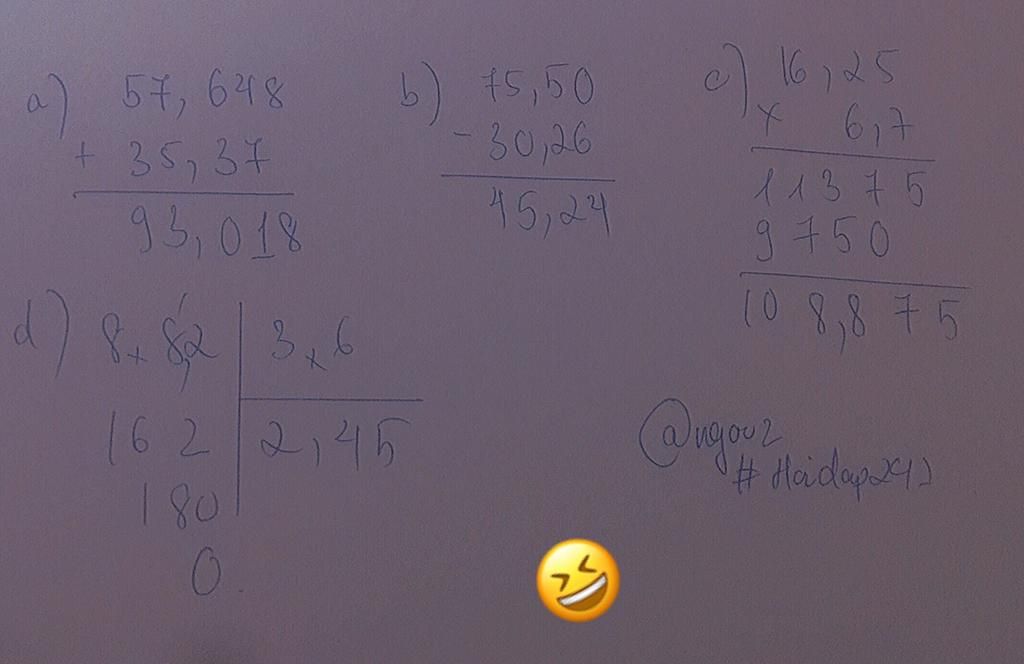 a) 57,648
+ 35,37
93,018
b) 75,50
- 30,26
45,24
c) 16,25
x 6,7
11375
9750
108,875
d) 8x 8,2 | 3x6
162 | 2,45
180
0
@ngouz
#Hoidap247